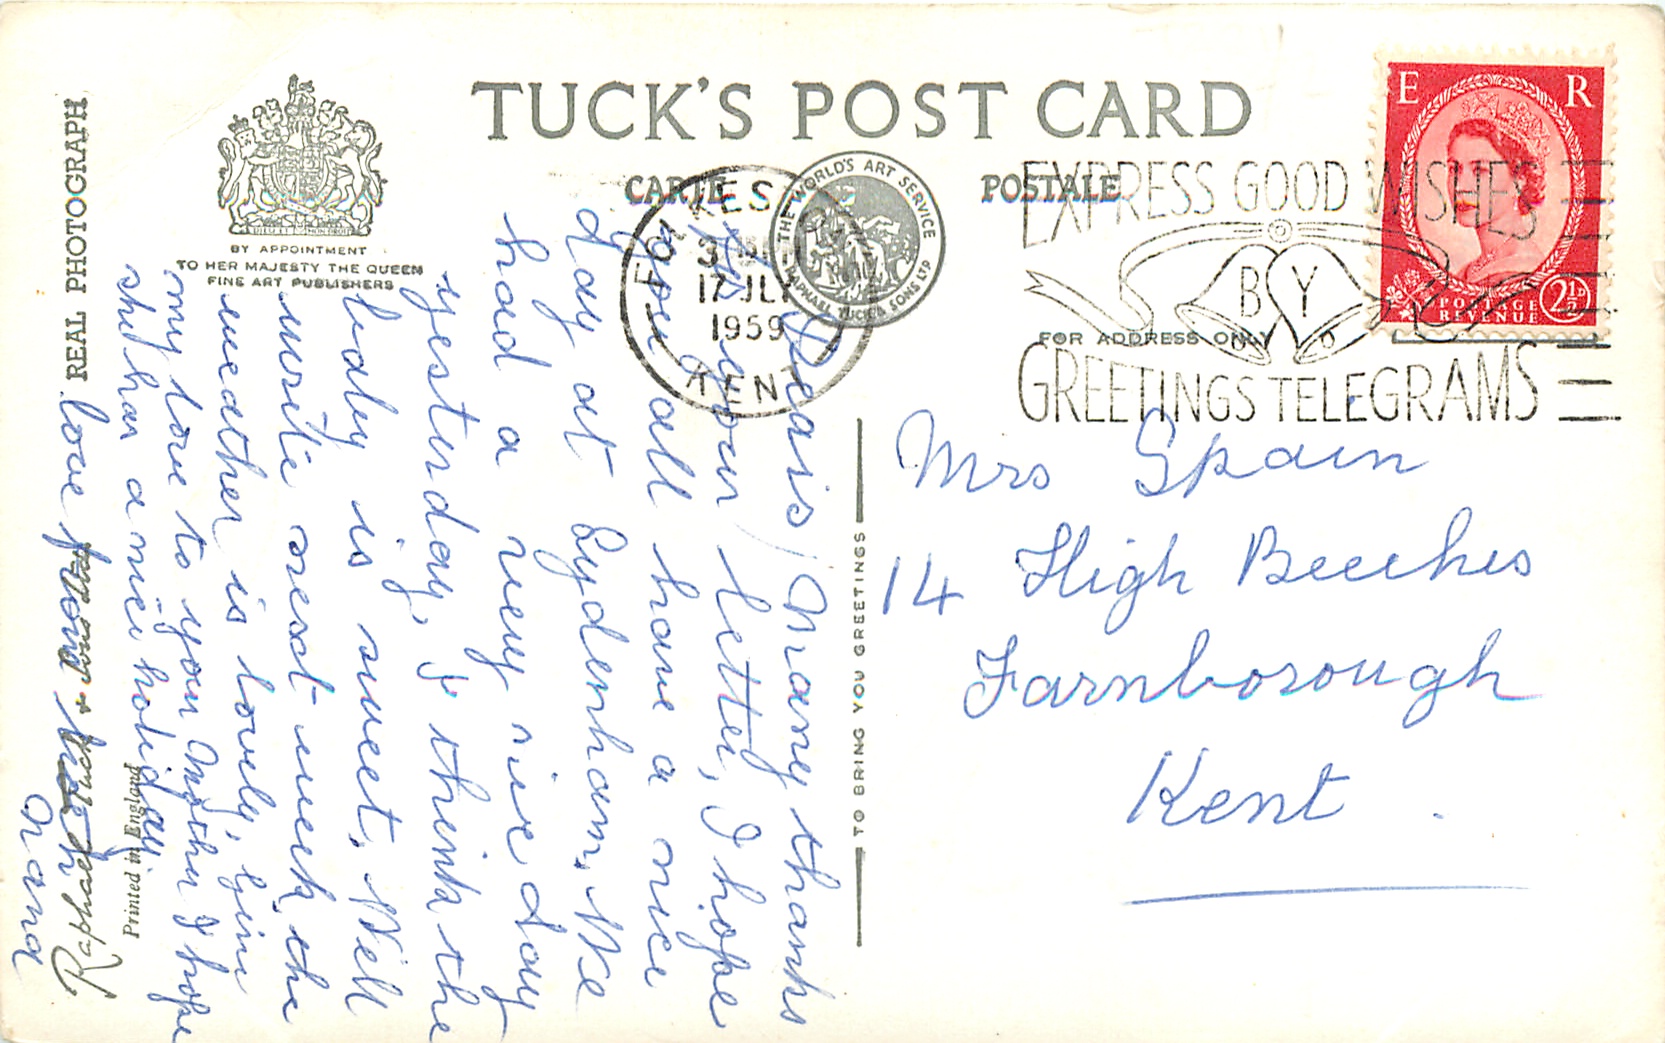 TUCK'S POST CARD
CARTE POSTALE
BY APPOINTMENT
TO HER MAJESTY THE QUEEN
FINE ART PUBLISHERS
REAL PHOTOGRAPH
THE WORLD'S ART SERVICE
RAPHAEL TUCK & SONS LTD
FOLKESTONE
17 JLY
1959
KENT
EXPRESS GOOD WISHES
BY
GREETINGS TELEGRAMS
E R
POSTAGE
REVENUE
2½D
FOR ADDRESS ONLY
Mrs Spain
14 High Beeches
Farnborough
Kent.
TO BRING YOU GREETINGS
Dearis, Many thanks
for your letter, I hope
you all have a nice
day at Sydenham. We
had a very nice day
yesterday, & think the
baby is sweet. Will
write next week, the
weather is lovely, give
my love to your Mother I hope
she has a nice holiday.
love from
Nana
Raphael Tuck & Sons Ltd
Printed in England